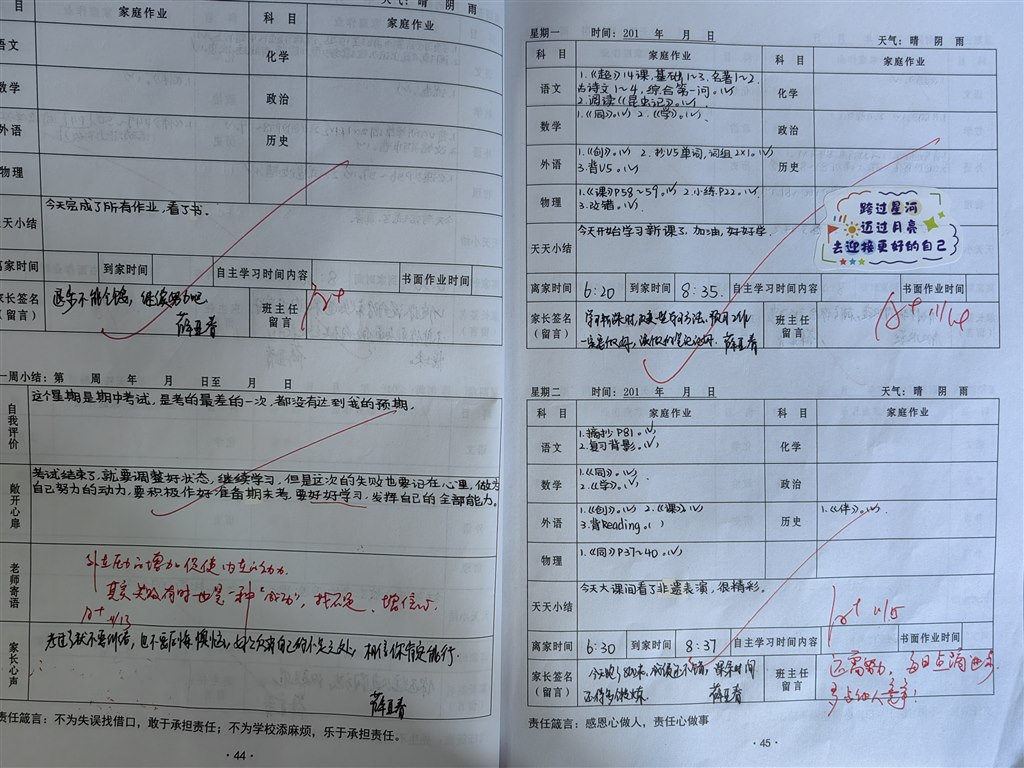 目 家庭作业 科 目 家庭作业
天气：晴 阴 雨
语文 化学
数学 政治
外语 历史
物理
天天小结 今天完成了所有作业，看了书。
离家时间 到家时间 自主学习时间内容 书面作业时间
家长签名（留言） 退步不能气馁，继续努力吧
班主任留言
一周小结：第 周 年 月 日至 月 日
自我评价 这个星期是期中考试，是考的最差的一次，都没有达到我的预期。
敞开心扉 考试结束了，就要调整好状态，继续学习，但是这次的失败也要记在心里，做为
自己努力的动力，要积极作好准备期末考，要好好学习，发挥自己的全部能力。
老师寄语 外在压力的增加促使内在的动力
其实失败有时也是一种“成功”，找不足、增信心
11/13
家长心声
责任箴言：不为失误找借口，敢于承担责任；不为学校添麻烦，乐于承担责任。
·44·
星期一 时间：201 年 月 日 天气：晴 阴 雨
科 目 家庭作业 科 目 家庭作业
语文 1.《超》14课，基础1~3，名著1~2.
古诗文1~4，综合第一问。(√)
2.阅读《昆虫记》。(√)
化学
数学 1.《同》。(√) 2.《学》。(√)
政治
外语 1.《创》。(√) 2.抄U5单词，词组2×1。(√)
3.背U5。(√)
历史
物理 1.《课》P58~59。(√) 2.小练P22。(√)
3.改错。(√)
跨过星河
迈过月亮
去迎接更好的自己
天天小结 今天开始学习新课了，加油，好好学。
离家时间 6:20 到家时间 8:35. 自主学习时间内容 书面作业时间
家长签名（留言）
班主任留言 11/14
星期二 时间：201 年 月 日 天气：晴 阴 雨
科 目 家庭作业 科 目 家庭作业
语文 1.摘抄P81。(√)
2.复习背影。(√)
化学
数学 1.《同》。(√)
2.《学》。(√)
政治
外语 1.《创》。(√) 2.《课》(√)
3.背Reading。( )
历史 1.《伴》。(√).
物理 1.《同》P37~40。(√)
天天小结 今天大课间看了非遗表演，很精彩。
离家时间 6:30 到家时间 8:37 自主学习时间内容 书面作业时间
11/15
家长签名（留言）
班主任留言 还需努力，每日点滴
责任箴言：感恩心做人，责任心做事
·45·